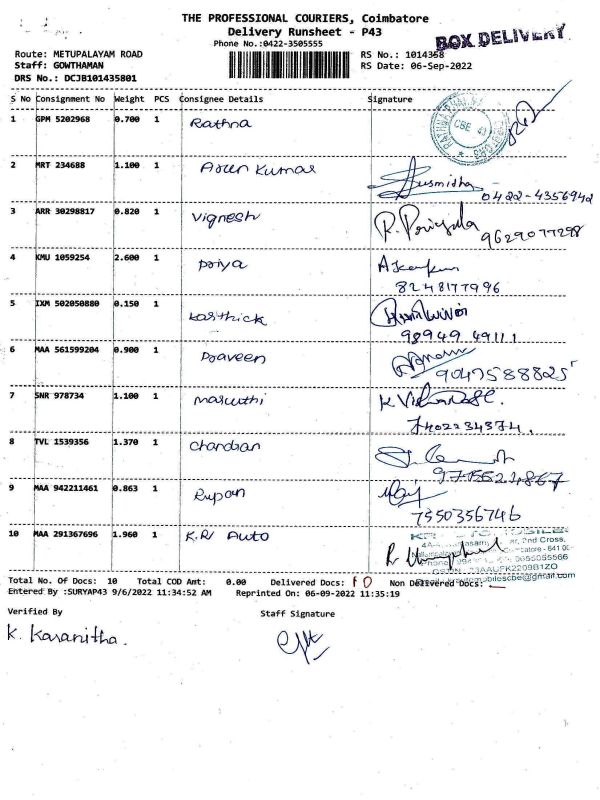 THE PROFESSIONAL COURIERS, Coimbatore
Delivery Runsheet - P43
BOX DELIVERY
Phone No.:0422-3505555
Route: METUPALAYAM ROAD
RS No.: 1014358
Staff: GOWTHAMAN
RS Date: 06-Sep-2022
DRS No.: DCJB101435801
S No Consignment No Weight PCS Consignee Details Signature
1 GPM 5202968 0.700 1 Rathna
2 MRT 234688 1.100 1 Arun Kumar Susmitha
0422-4356942
3 ARR 30298817 0.820 1 Vignesh R. Priyala
9629077298
4 KMU 1059254 2.600 1 Priya
8248177996
5 IXM 502050880 0.150 1 Karthick
98949 49111
6 MAA 561599204 0.900 1 Praveen
9047588825
7 SNR 978734 1.100 1 Maruthi
7402234374.
8 TVL 1539356 1.370 1 Chandran
9715524867
9 MAA 942211461 0.863 1 Rupan
7550356746
10 MAA 291367696 1.960 1 K.R Auto
Total No. Of Docs: 10 Total COD Amt: 0.00 Delivered Docs: 10 Non Delivered Docs:
Entered By :SURYAP43 9/6/2022 11:34:52 AM Reprinted On: 06-09-2022 11:35:19
Verified By Staff Signature
K. Karanitha.